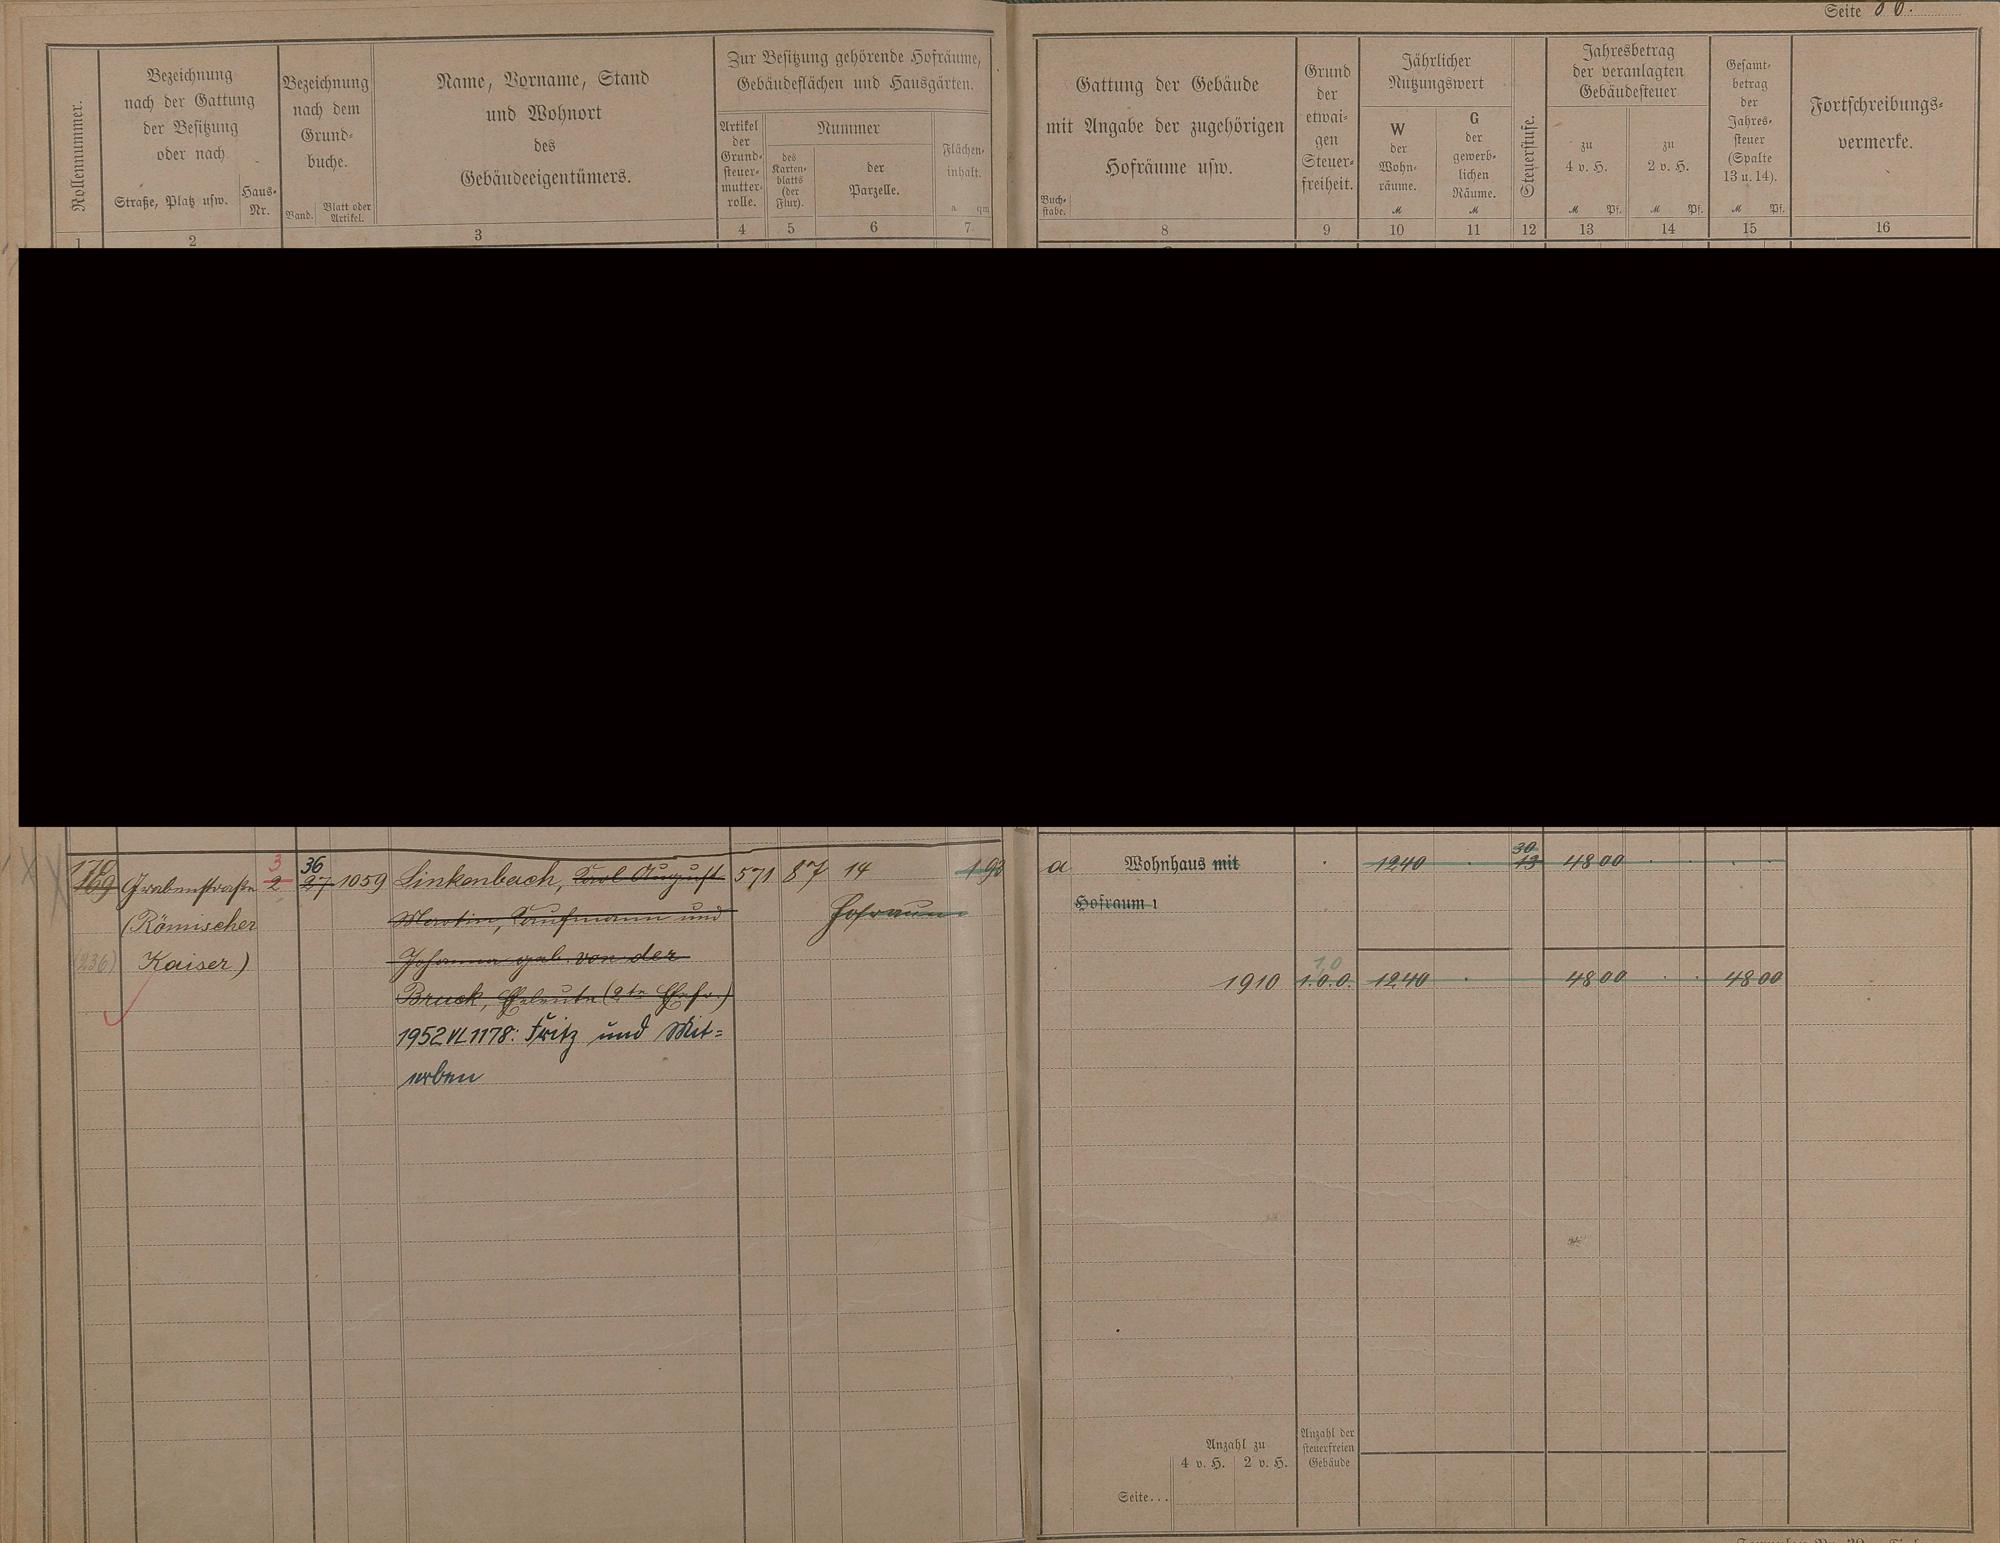 Seite
Rollennummer.
Bezeichnung
nach der Gattung
der Besitzung
oder nach
Straße, Platz usw.
Haus-
Nr.
Bezeichnung
nach dem
Grund-
buche.
Band.
Blatt oder
Artikel.
Name, Vorname, Stand
und Wohnort
des
Gebäudeeigentümers.
Zur Besitzung gehörende Hofräume,
Gebäudeflächen und Hausgärten.
Artikel
der
Grund-
steuer-
mutter-
rolle.
Nummer
des
Karten-
blatts
(der
Flur).
der
Parzelle.
Flächen-
inhalt.
a qm
Gattung der Gebäude
mit Angabe der zugehörigen
Hofräume usw.
Buch-
stabe.
Grund
der
etwai-
gen
Steuer-
freiheit.
Jährlicher
Nutzungswert
W
der
Wohn-
räume.
M
G
der
gewerb-
lichen
Räume.
M
Steuerstufe.
Jahresbetrag
der veranlagten
Gebäudesteuer
zu
4 v. H.
M Pf.
zu
2 v. H.
M Pf.
Gesamt-
betrag
der
Jahres-
steuer
(Spalte
13 u. 14).
M Pf.
Fortschreibungs-
vermerke.
1 2 3 4 5 6 7 8 9 10 11 12 13 14 15 16
3 36 30
169 Grabenstraße 2 27 1059 Linkenbach, Karl August 571 87 14 1 93 a Wohnhaus mit 1240 13 48 00
(Römischer Martin, Kaufmann und Hofraum Hofraum 1
(236) Kaiser) Johanna geb. von der
1910 1.0.0. 1240 48 00 48 00
Bruck, Eheleute (2te Ehefr.)
1952 VL 1178: Fritz und Mit=
erben
Anzahl zu
4 v. H. 2 v. H.
Anzahl der
steuerfreien
Gebäude
Seite...